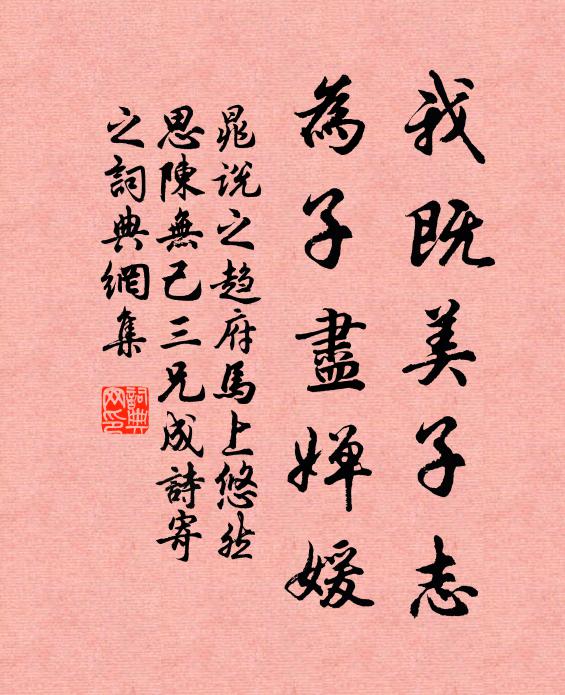 我既美子志
為子盡嬋媛
晁说之趋府馬上悠然
思陳無己三兄成詩寄
之詞典網集
詞典网印